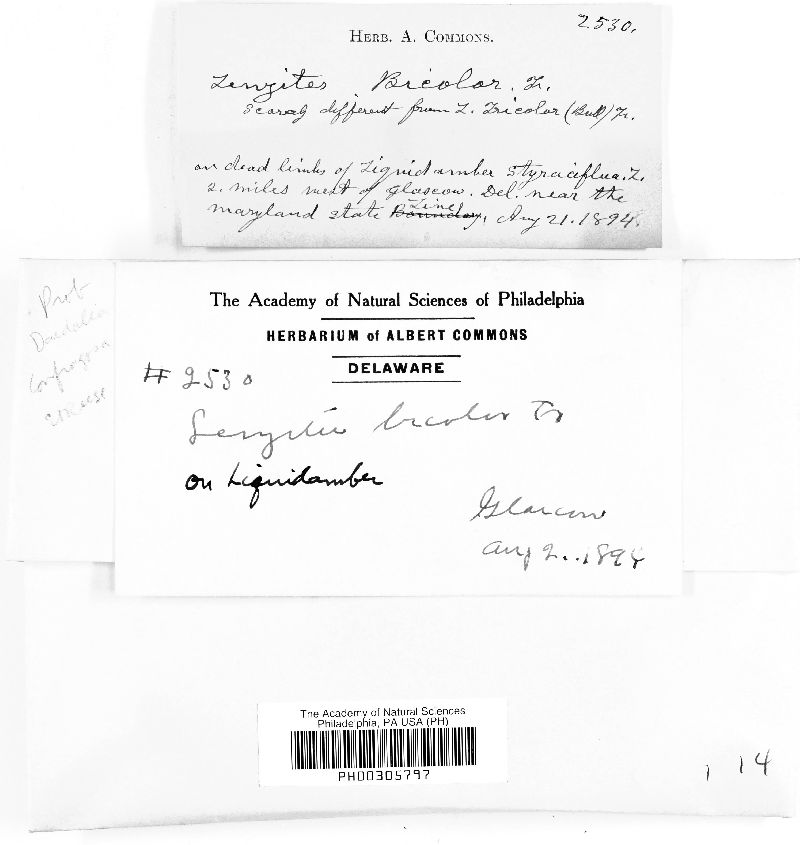 2530.
HERB. A. COMMONS.
Lenzites Bicolor. Fr.
Scarcely different from L. Tricolor (Bull) Fr.
on dead limbs of Liquidamber Styraciflua. L.
2. miles west of Glascow. Del. near the
maryland state Boundary Line, Aug 21. 1894.
Prob
Daedalia
Confragosa
The Academy of Natural Sciences of Philadelphia
HERBARIUM of ALBERT COMMONS
DELAWARE
# 2530
Lenzites bicolor Fr
on Liquidamber
Glascow
Aug 2..1894
The Academy of Natural Sciences
Philadelphia, PA USA (PH)
PH00305797
1 14